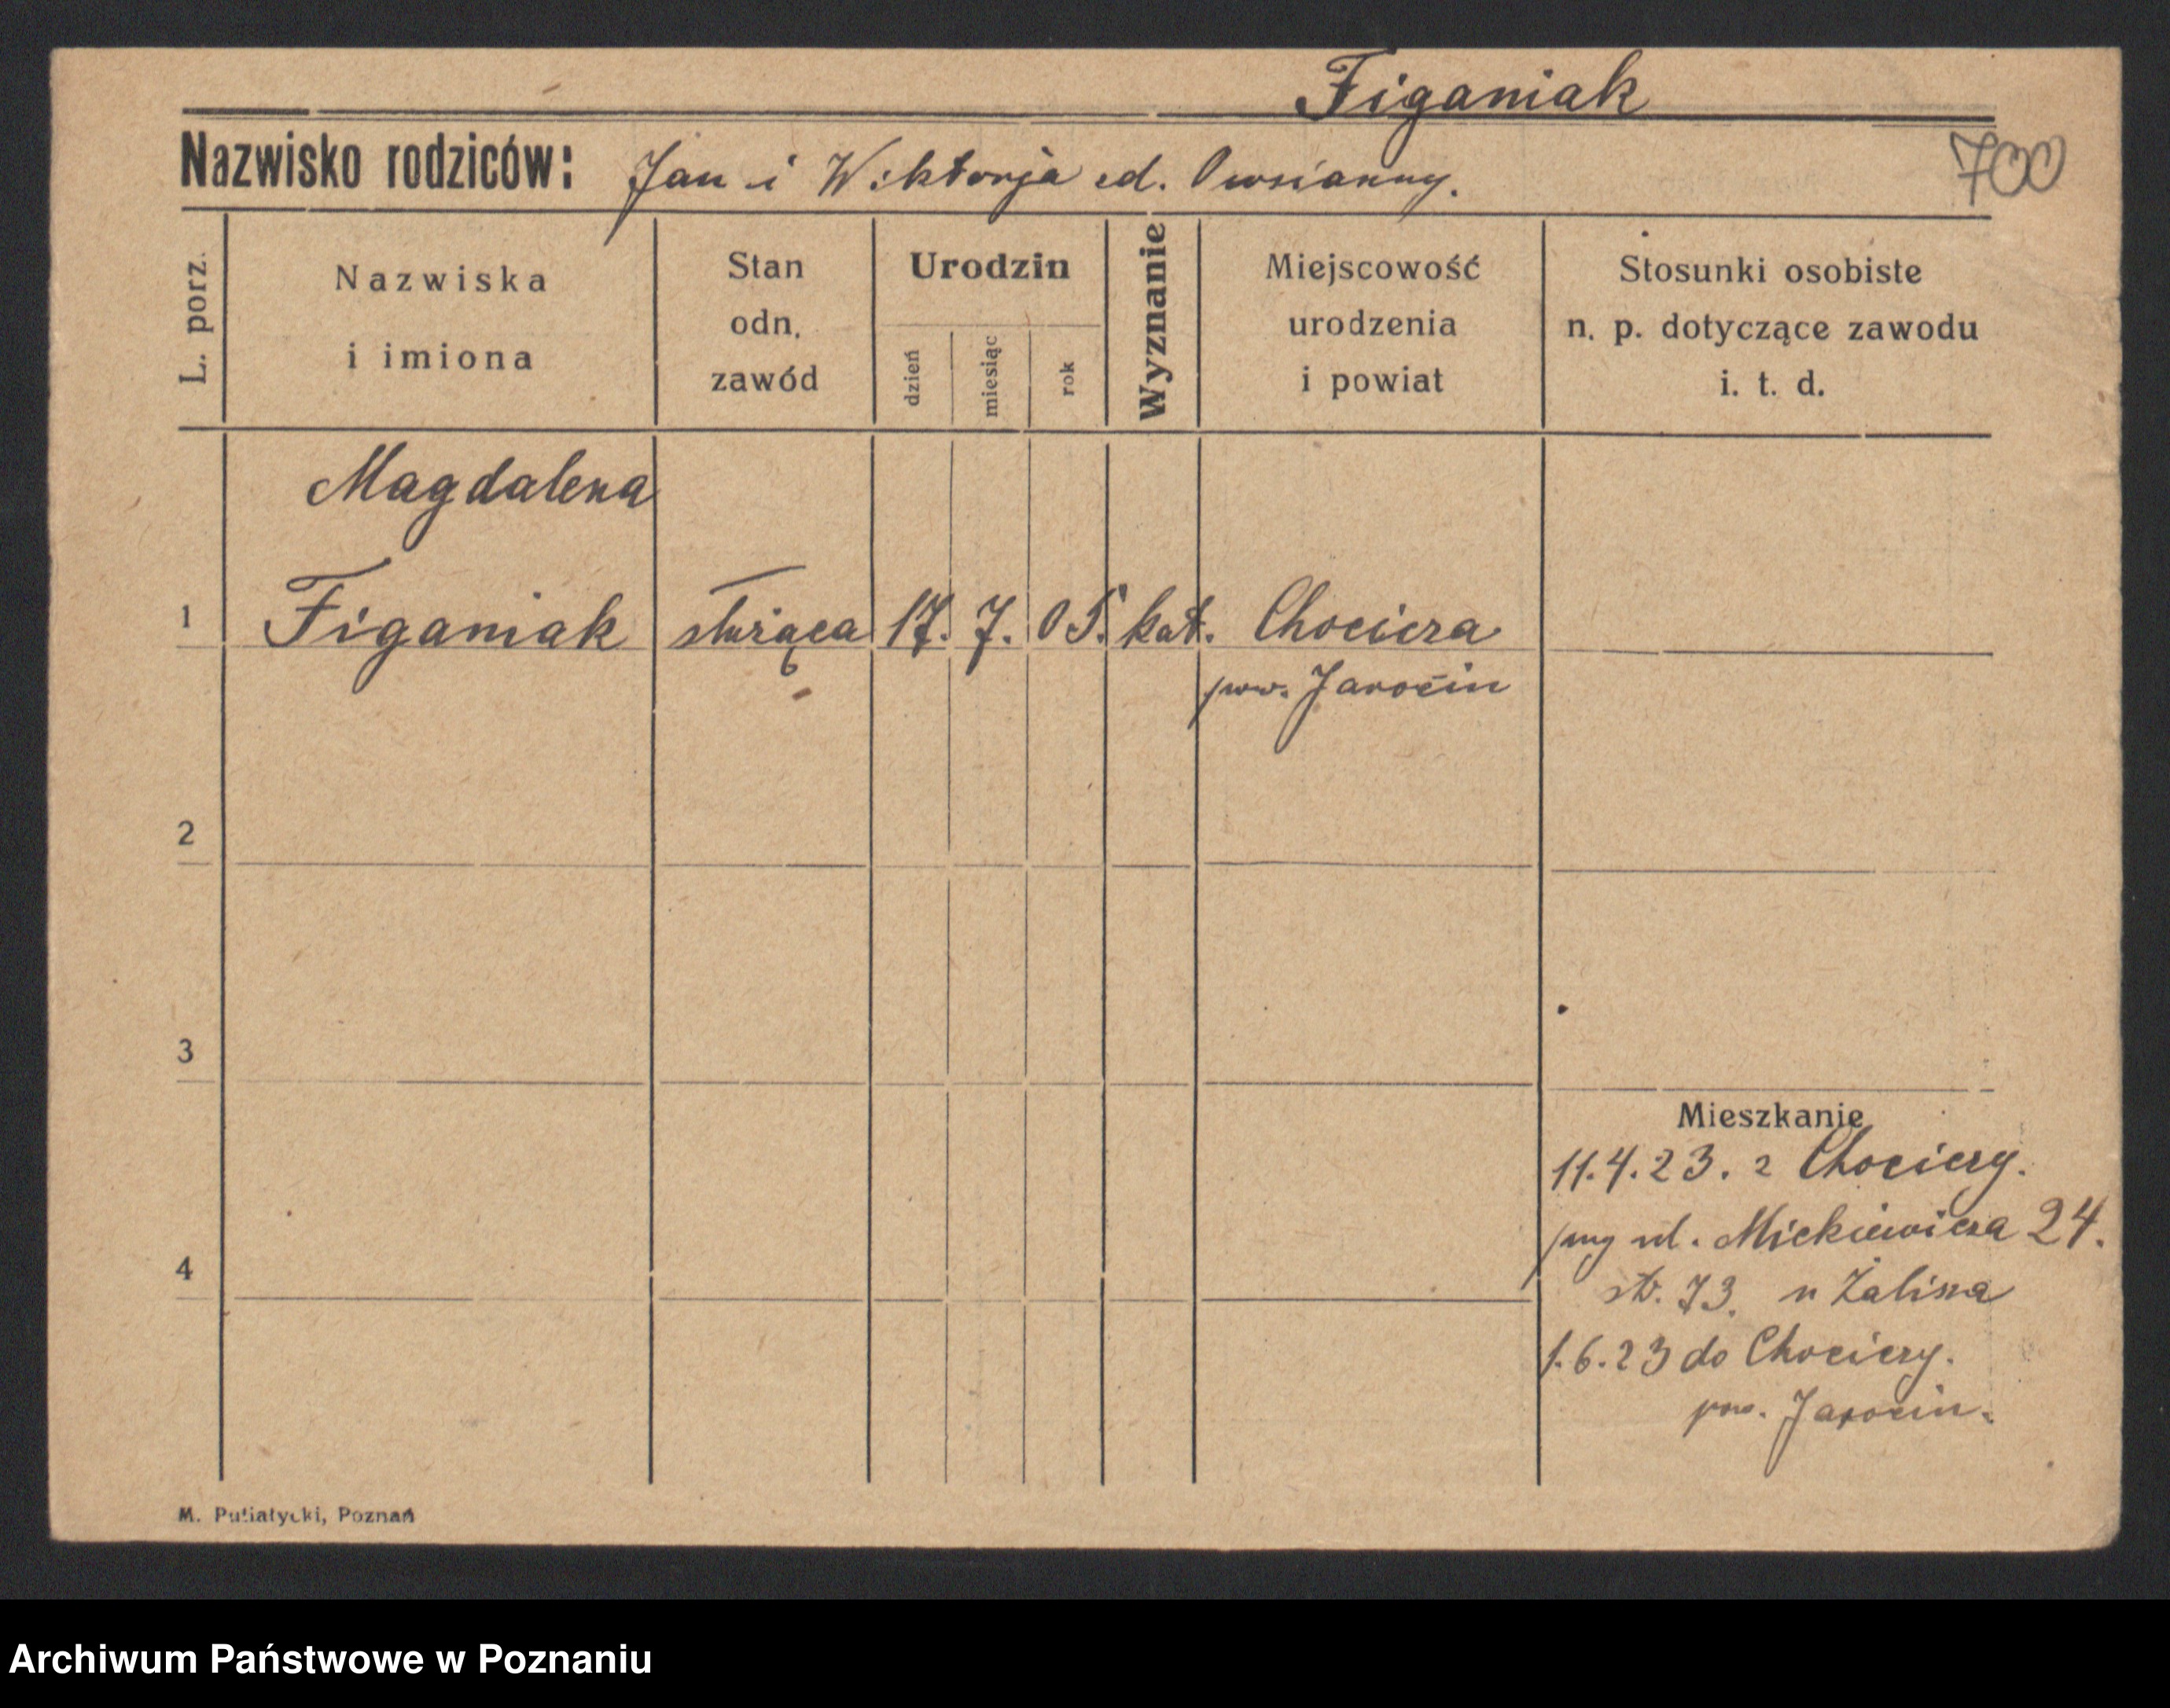 Figaniak
Nazwisko rodziców: Jan i Wiktorja ed. Owsianny.
700
L. porz.
Nazwiska
i imiona
Stan
odn.
zawód
Urodzin
dzień
miesiąc
rok
Wyznanie
Miejscowość
urodzenia
i powiat
Stosunki osobiste
n. p. dotyczące zawodu
i. t. d.
Magdalena
1 Figaniak służąca 17. 7. 05. kat. Chocicza
pow. Jarocin
2
3
Mieszkanie
11.4.23. z Chociczy.
przy ul. Mickiewicza 24.
4
str. 73. u Zalisza
1.6.23 do Chociczy.
pow. Jarocin.
M. Putiatycki, Poznań
Archiwum Państwowe w Poznaniu